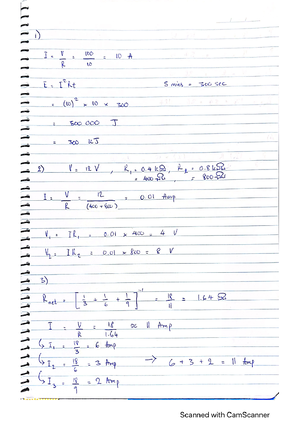 1)
I = V/R = 100/10 = 10 A
E = I²Rt    5 mins = 300 sec
= (10)² × 10 × 300
= 300 000 J
= 300 kJ
2) V = 12 V , R₁ = 0.4 kΩ , R₂ = 0.8 kΩ
= 400 Ω , = 800 Ω
I = V/R = 12/(400+800) = 0.01 Amp
V₁ = IR₁ = 0.01 × 400 = 4 V
V₂ = IR₂ = 0.01 × 800 = 8 V
3)
= [1/3 + 1/6 + 1/9]⁻¹ = 18/11 = 1.64 Ω
I = V/R = 18/1.64 ≈ 11 Amp
I₁ = 18/3 = 6 Amp
I₂ = 18/6 = 3 Amp → 6 + 3 + 2 = 11 Amp
I₃ = 18/9 = 2 Amp
Scanned with CamScanner